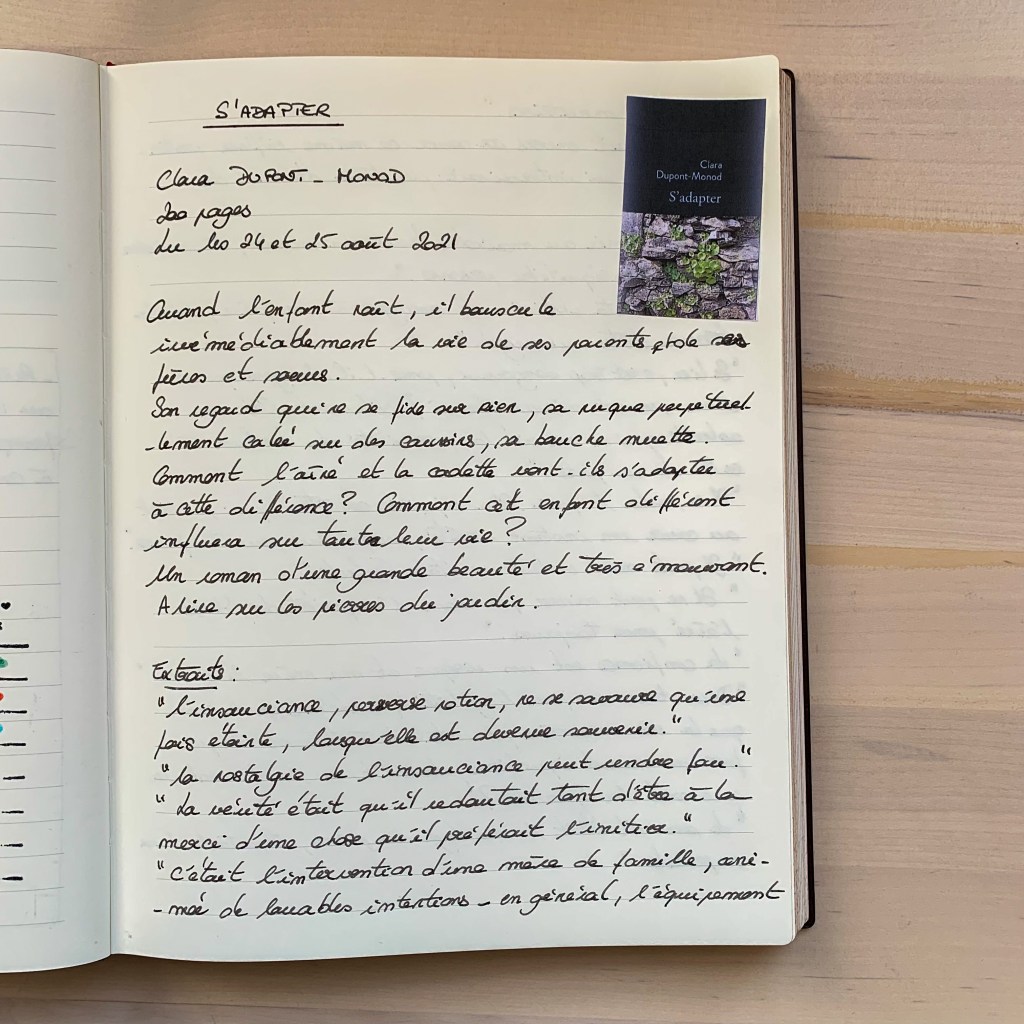 S'ADAPTER
Clara DUPONT-MONOD
200 pages
Lu les 24 et 25 août 2021
Clara
Dupont-Monod
S'adapter
Quand l'enfant naît, il bouscule
irrémédiablement la vie de ses parents, et de ses
frères et sœurs.
Son regard qui ne se fixe sur rien, sa nuque perpétuel-
-lement calée sur des coussins, sa bouche muette.
Comment l'aîné et la cadette vont-ils s'adapter
à cette différence? Comment cet enfant différent
influera sur toute leur vie?
Un roman d'une grande beauté et très émouvant.
A lire sur les pierres du jardin.
Extraits :
"L'insouciance, perverse notion, ne se savoure qu'une
fois éteinte, lorsqu'elle est devenue souvenir."
"La nostalgie de l'insouciance peut rendre fou."
"La vérité était qu'il redoutait tant d'être à la
merci d'une chose qu'il préférait l'imiter."
"C'était l'intervention d'une mère de famille, ani-
-mée de louables intentions - en général, l'équipement